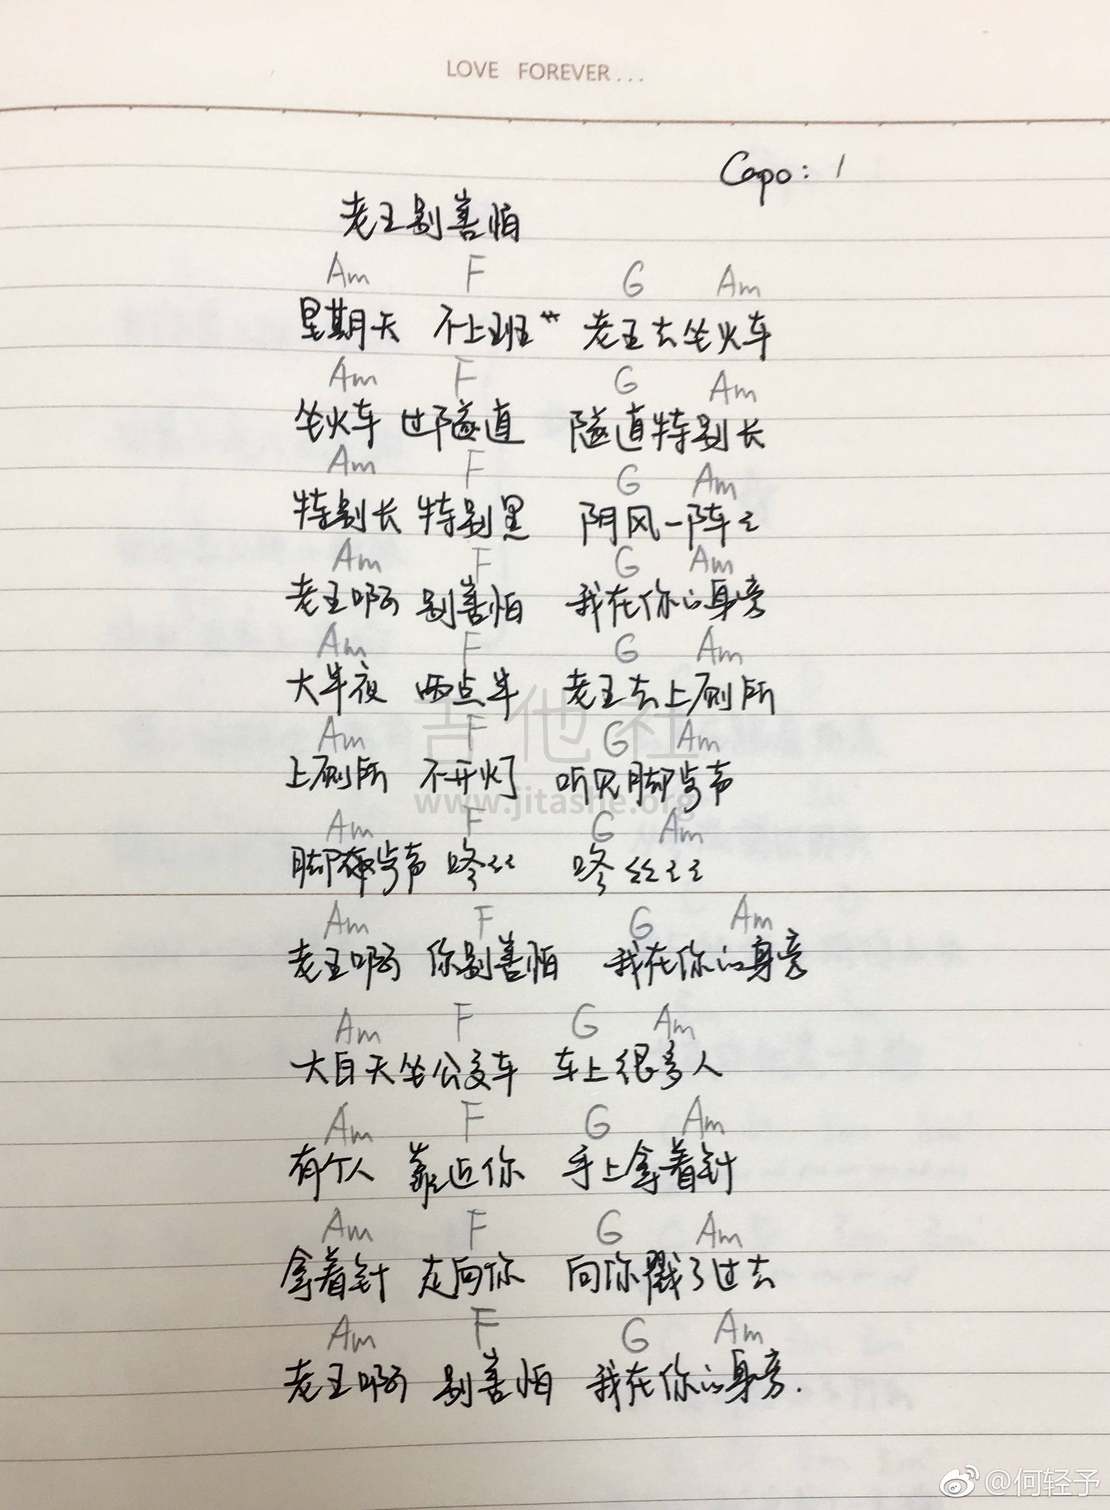 LOVE FOREVER...
Capo: 1
老王别害怕
Am F G Am
星期天 不上班 老王去坐火车
Am F G Am
坐火车 过隧道 隧道特别长
Am F G Am
特别长 特别黑 阴风一阵々
Am F G Am
老王啊 别害怕 我在你的身旁
Am F G Am
大半夜 两点半 老王去上厕所
Am F G Am
上厕所 不开灯 听见脚步声
吉他社
www.jitashe.org
Am F G Am
脚步声 咚々々 咚々々々々
Am F G Am
老王啊 你别害怕 我在你的身旁
Am F G Am
大白天坐公交车 车上很多人
Am F G Am
有个人 靠近你 手上拿着针
Am F G Am
拿着针 走向你 向你戳了过去
Am F G Am
老王啊 别害怕 我在你的身旁.
@何轻予